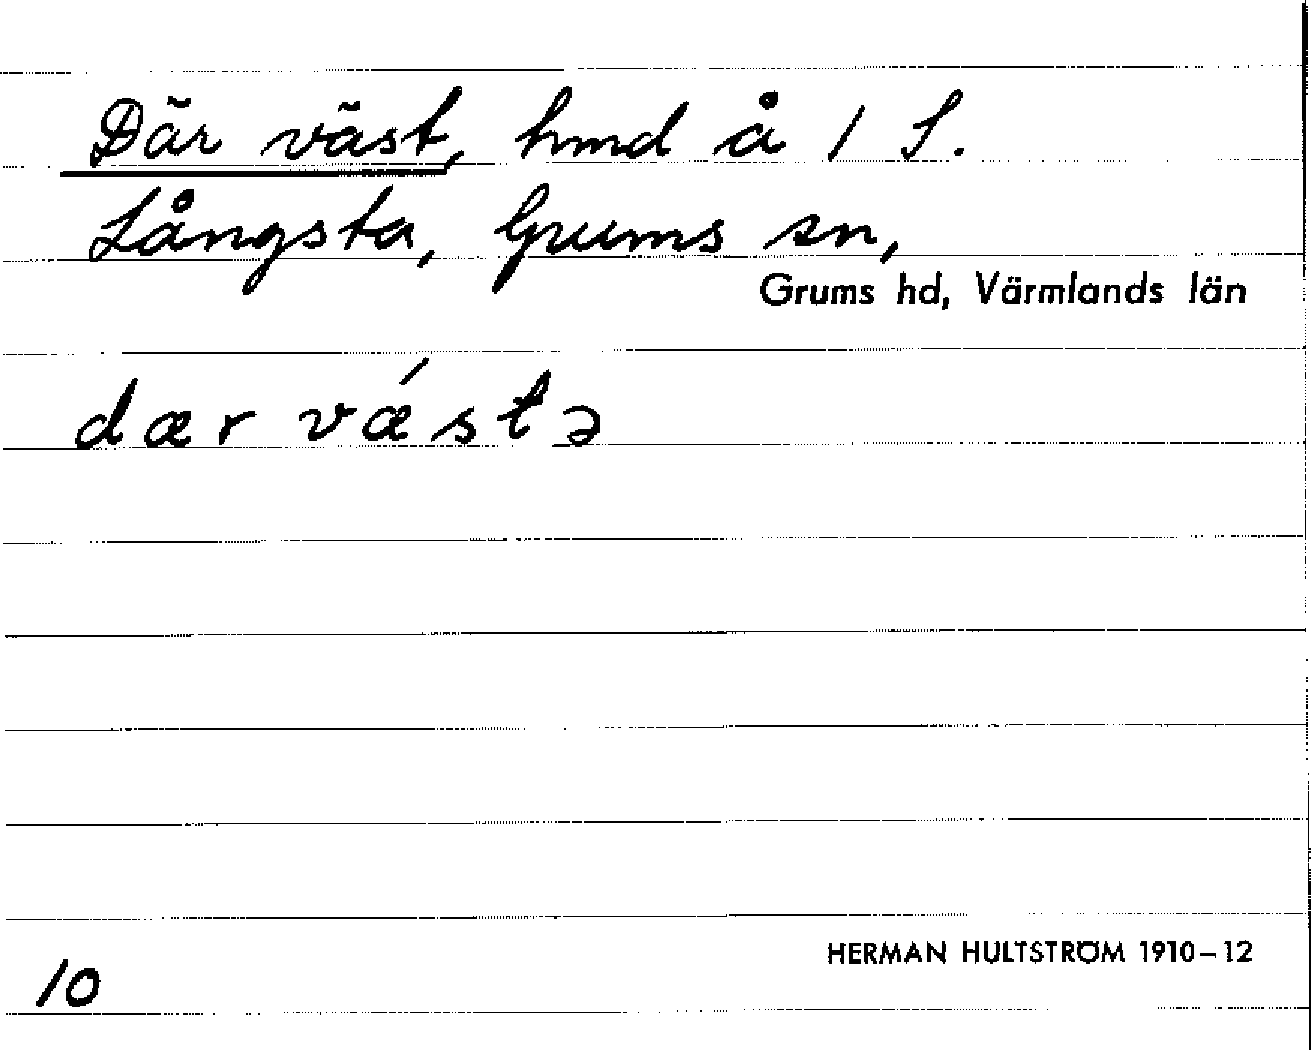 Där väst, hmd å 1 S.
Långsta, Grums sn,
Grums hd, Värmlands län
dær vǽstə
HERMAN HULTSTRÖM 1910–12
10